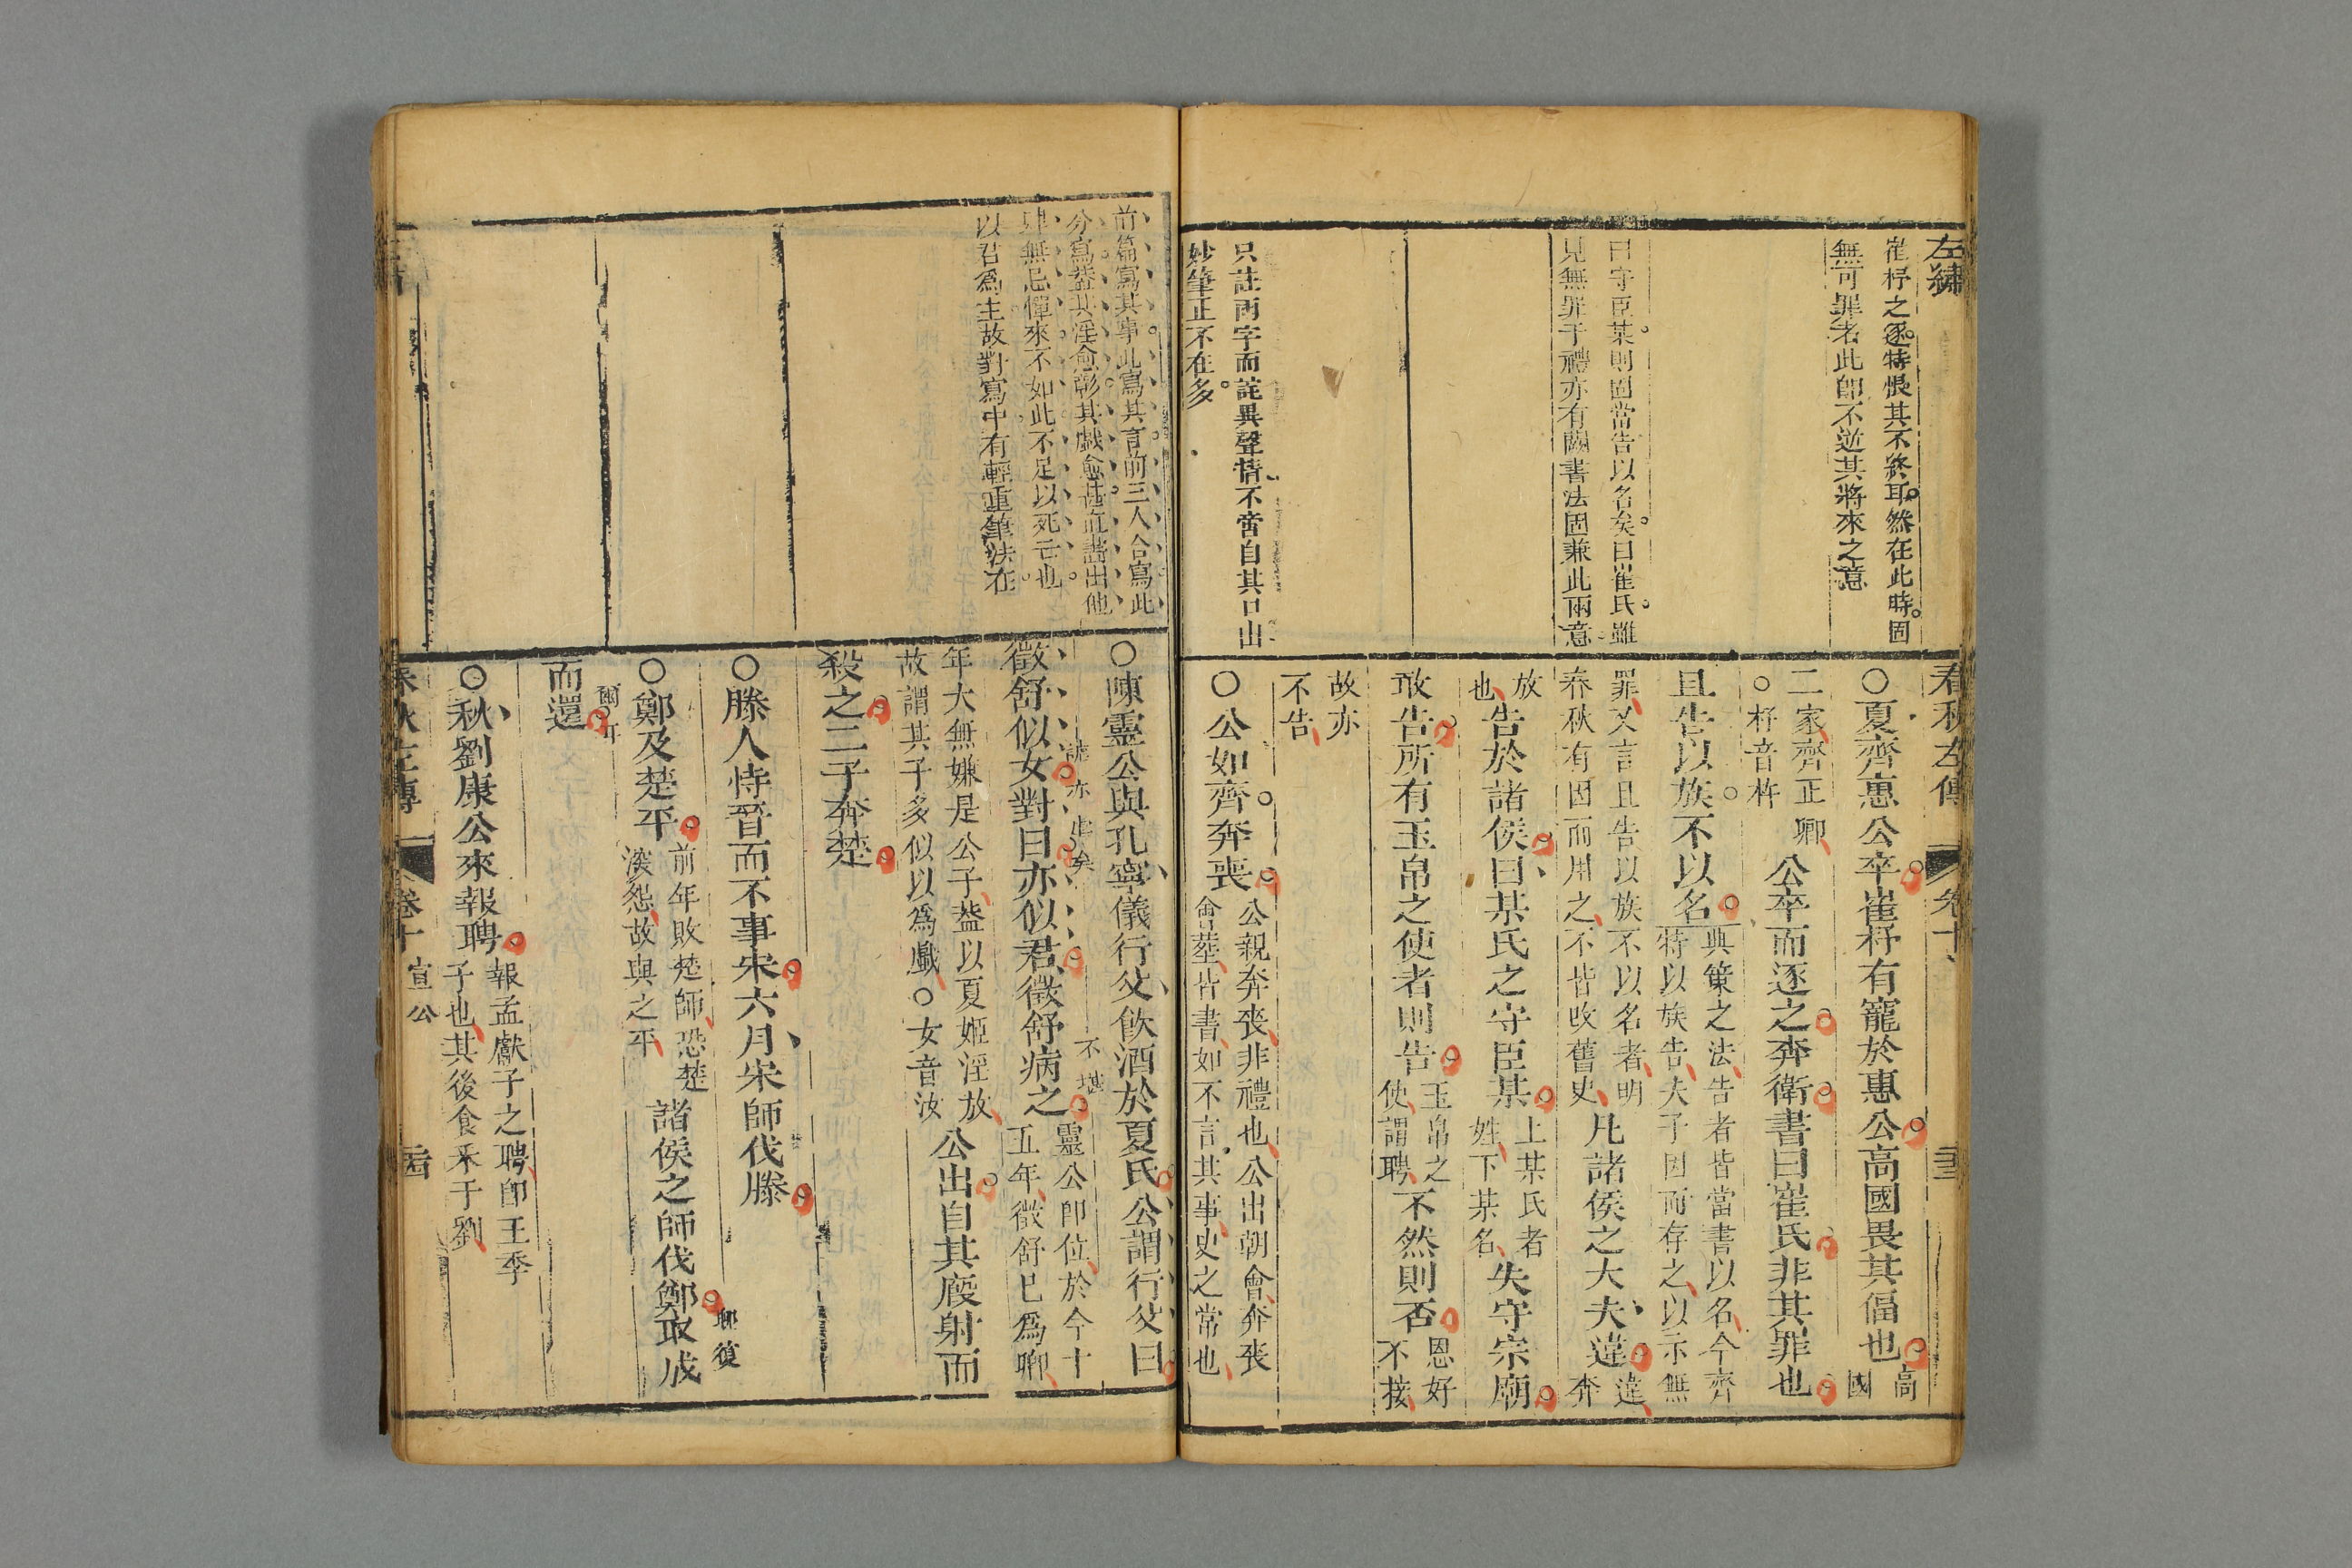 左繡
崔杼之逐特恨其不終耳然在此時固
無可罪名此即不逆其將來之意
曰守臣某則固當告以名矣曰崔氏雖
見無罪于禮亦有闕書法固兼此兩意
只註兩字而詫異聲情不啻自其口出
妙筆正不在多
春秋左傳 卷十
○夏齊惠公卒崔杼有寵於惠公高國畏其偪也高
國
二家齊正卿
○杼音杵
公卒而逐之奔衛書曰崔氏非其罪也
且告以族不以名
典策之法告者皆當書以名今齊
特以族告夫子因而存之以示無
罪又言且告以族不以名者明
春秋有因而用之不皆改舊史
凡諸侯之大夫違
違
奔
放
也
告於諸侯曰某氏之守臣某
上某氏者
姓下某名
失守宗廟
敢告所有玉帛之使者則告
玉帛之
使謂聘
不然則否
恩好
不接
故亦
不告
○公如齊奔喪
公親奔喪非禮也公出朝會奔喪
會葬皆書如不言其事史之常也
前篇寫其事此寫其言前三人合寫此
分寫葢其淫愈彰其戲愈甚直畫出他
肆無忌憚來不如此不足以死亡也
以君爲主故對寫中有輕重筆法在
○陳靈公與孔寧儀行父飲酒於夏氏公謂行父曰
徵舒似女對曰亦似君徵舒病之
不堪
靈公即位於今十
五年徵舒已爲卿
年大無嫌是公子葢以夏姬淫放
故謂其子多似以爲戲○女音汝
公出自其廄射而
殺之二子奔楚
○滕人恃晉而不事宋六月宋師伐滕
○鄭及楚平
前年敗楚師恐楚
深怨故與之平
諸侯之師伐鄭取成
而還
○秋劉康公來報聘
報孟獻子之聘即王季
子也其後食采于劉
春秋左傳 卷十 宣公